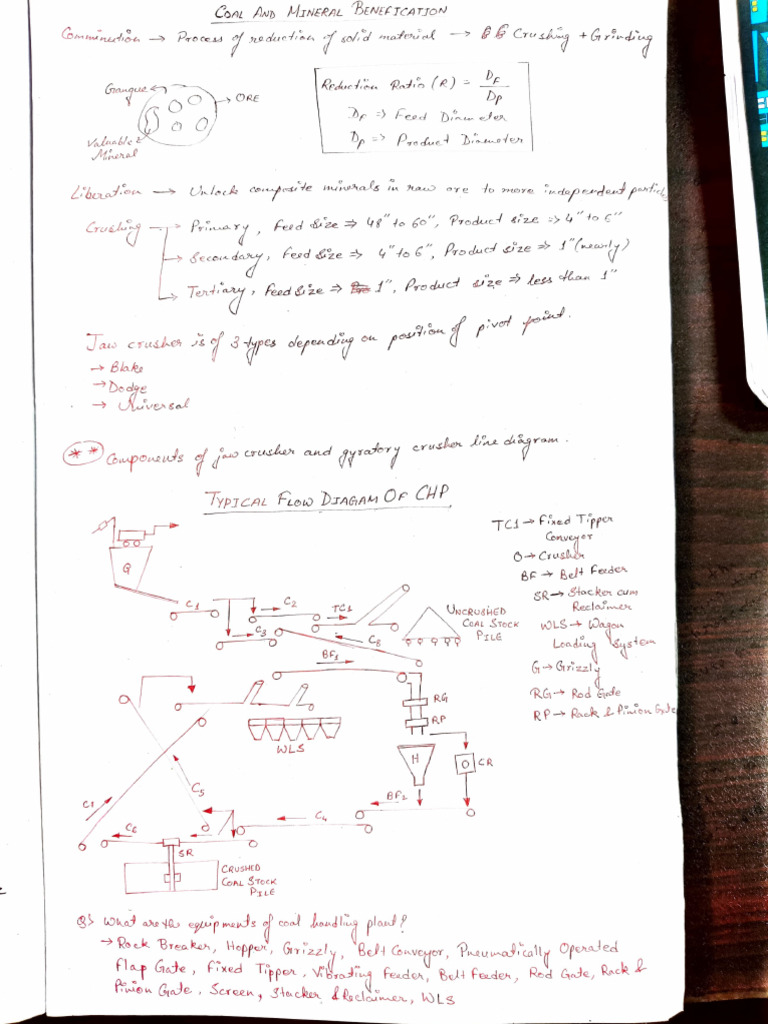 COAL AND MINERAL BENEFICATION
Comminution → Process of reduction of solid material → Crushing + Grinding
Gangue
ORE
Valuable
Mineral
Reduction Ratio (R) = DF/DP
DF ⇒ Feed Diameter
DP ⇒ Product Diameter
Liberation → Unlock composite minerals in raw ore to more independent particles
Crushing → Primary, Feed size ⇒ 48" to 60", Product size ⇒ 4" to 6"
→ Secondary, Feed size ⇒ 4" to 6", Product size ⇒ 1" (newly)
→ Tertiary, Feed size ⇒ 1", Product size ⇒ less than 1"
Jaw crusher is of 3 types depending on position of pivot point.
→ Blake
→ Dodge
→ Universal
** Components of jaw crusher and gyratory crusher line diagram.
TYPICAL FLOW DIAGAM OF CHP
TC1 → Fixed Tipper
Conveyor
O → Crusher
BF → Belt Feeder
SR → Stacker cum
Reclaimer
WLS → Wagon
Loading System
G → Grizzly
RG → Rod Gate
RP → Rack & Pinion Gate
G
C1
C2
TC1
C3
C8
UNCRUSHED
COAL STOCK
PILE
BF1
RG
RP
WLS
H
CR
C5
BF2
C7
C4
C6
SR
CRUSHED
COAL STOCK
PILE
Q> What are the equipments of coal handling plant?
→ Rock Breaker, Hopper, Grizzly, Belt Conveyor, Pneumatically Operated
Flap Gate, Fixed Tipper, Vibrating Feeder, Belt Feeder, Rod Gate, Rack &
Pinion Gate, Screen, Stacker & Reclaimer, WLS